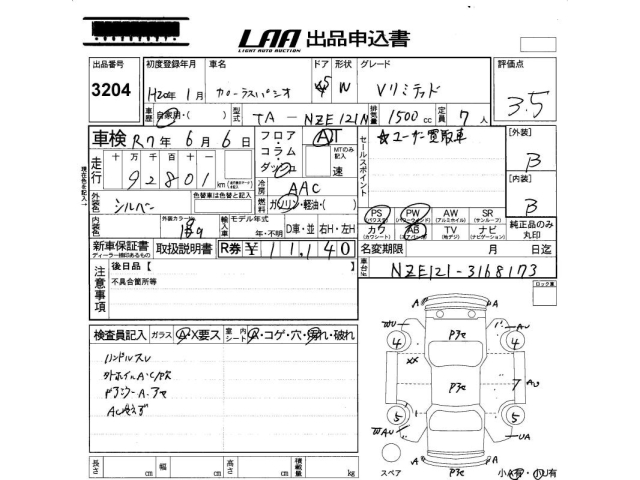 LAA 出品申込書
LIGHT AUTO AUCTION
出品番号 初度登録年月 車名 ドア 形状 グレード 評価点
3204 H20年 1月 カローラスパシオ 5 W Vリミテッド 3.5
車歴 自家用・( ) 型式 TA - NZE121N 排気量 1500cc 定員 7人
車検 R7年 6月 6日 フロア・コラム・ダッシュ AT MTのみ記入 速 セールスポイント ★ユーザー買取車 [外装] B
走行 十万千百十一 92801 km
冷房 AAC [内装] B
外装色 シルバー 色替車は色替と記入 燃料 ガソリン・軽油・( )
PS (パワステ) PW (パワーウィンド) AW (アルミホイル) SR (サンルーフ)
カワ (カワシート) AB (エアーバッグ) TV (地デジ) ナビ (ナビゲーション) 純正品のみ丸印
内装色 外装カラー№ 1B9 輸入車 モデル年式 年・不明 D車・並 右H・左H
新車保証書 ディーラー捺印あるもの 取扱説明書 R券 ¥11,140 名変期限 月 日迄
車台№ NZE121-3168173
ロック番
注意事項 後日品【
不具合箇所等
検査員記入 ガラス A・X要ス 室内シート A・コゲ・穴・汚れ・破れ
ハンドルスレ
AC
長さ cm 幅 cm 高さ cm 積載量 kg
A A
WU AU
4 4
XX
7 AU
5 5
WAU UA
A A
スペア 小A有・小U有